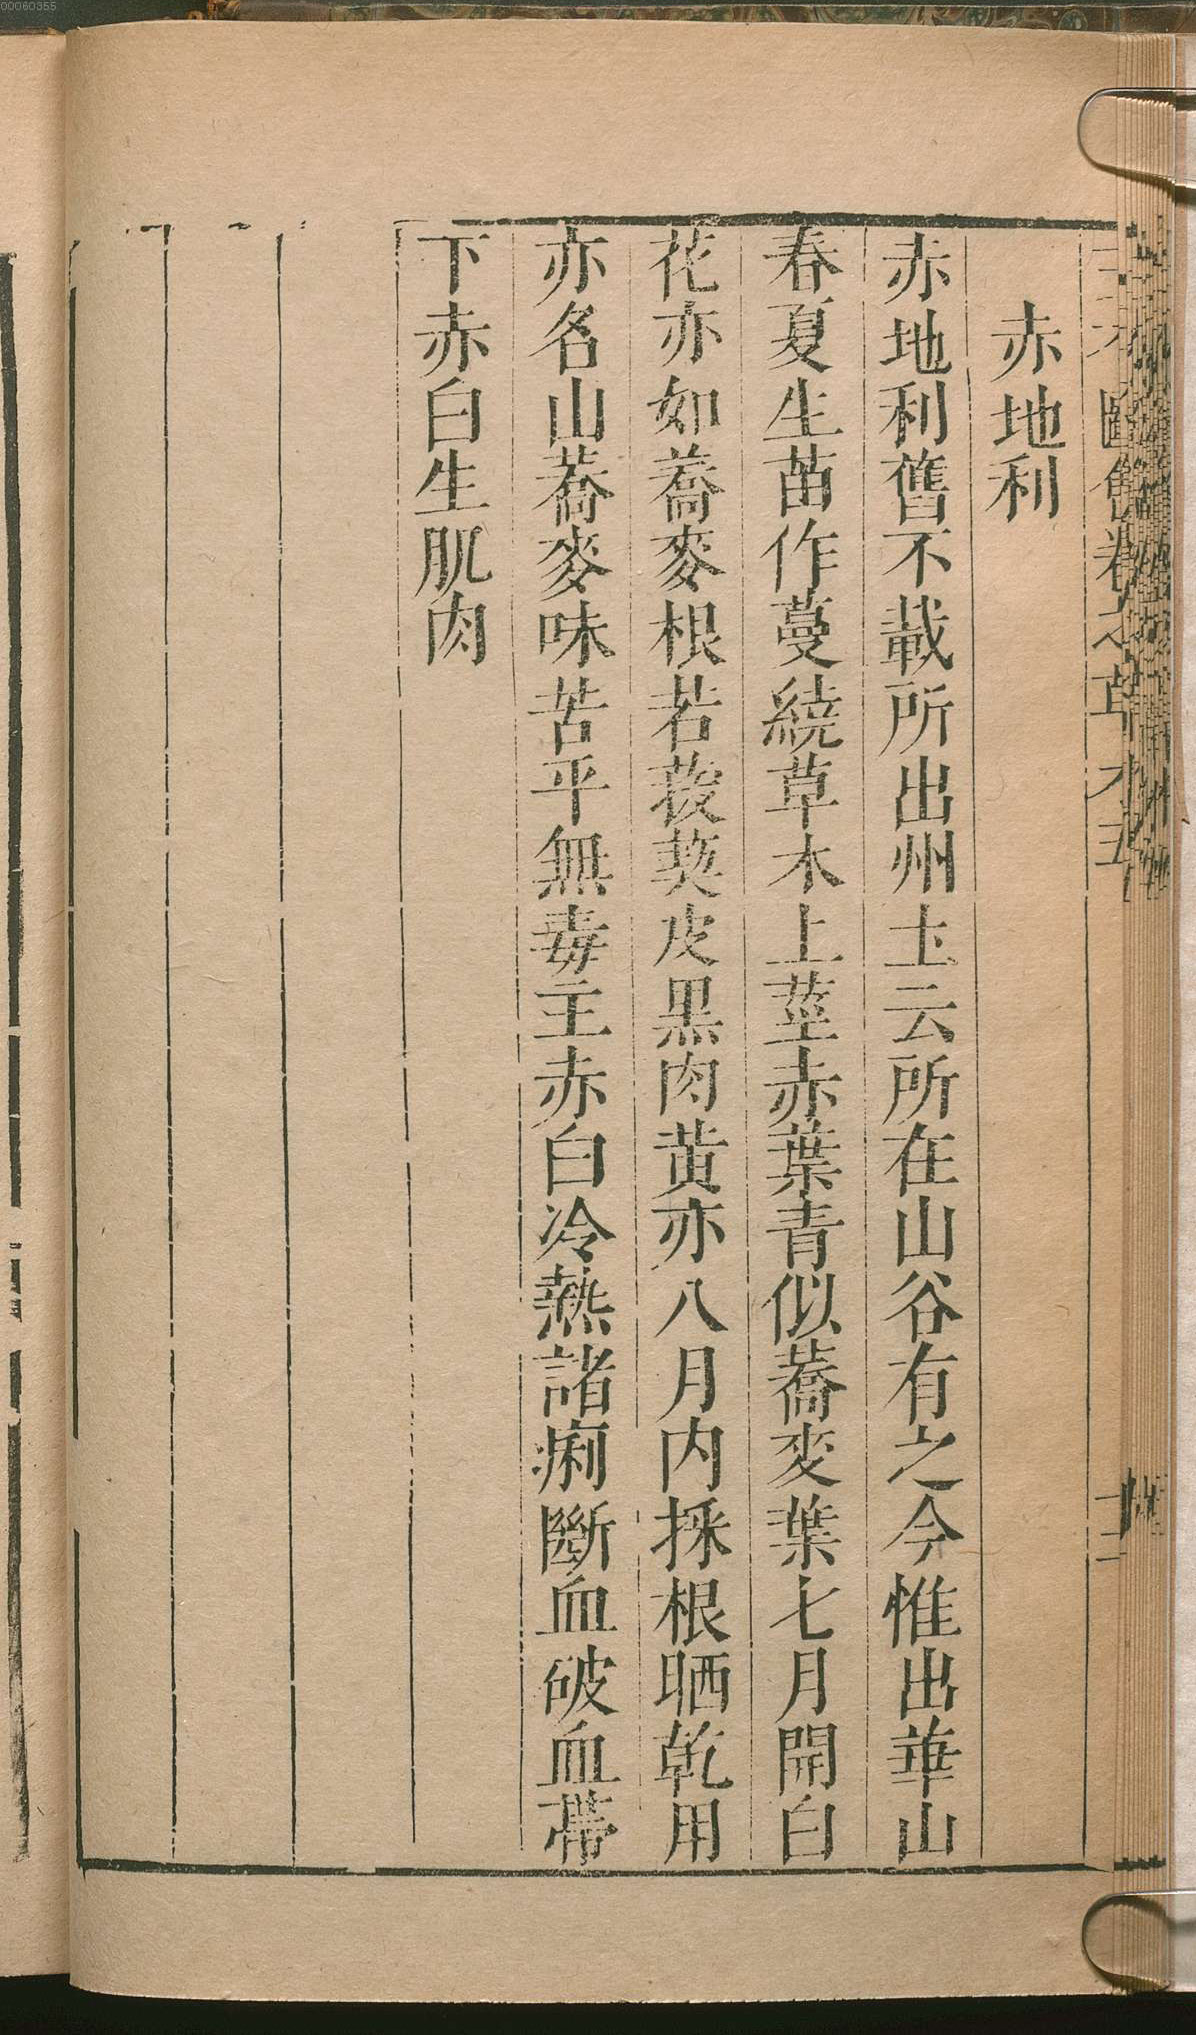 00060355
赤地利
赤地利舊不載所出州土云所在山谷有之今惟出華山
春夏生苗作蔓繞草木上莖赤葉青似蕎麥葉七月開白
花亦如蕎麥根若菝葜皮黑肉黄亦八月内採根晒乾用
亦名山蕎麥味苦平無毒主赤白冷熱諸痢斷血破血帶
下赤白生肌肉